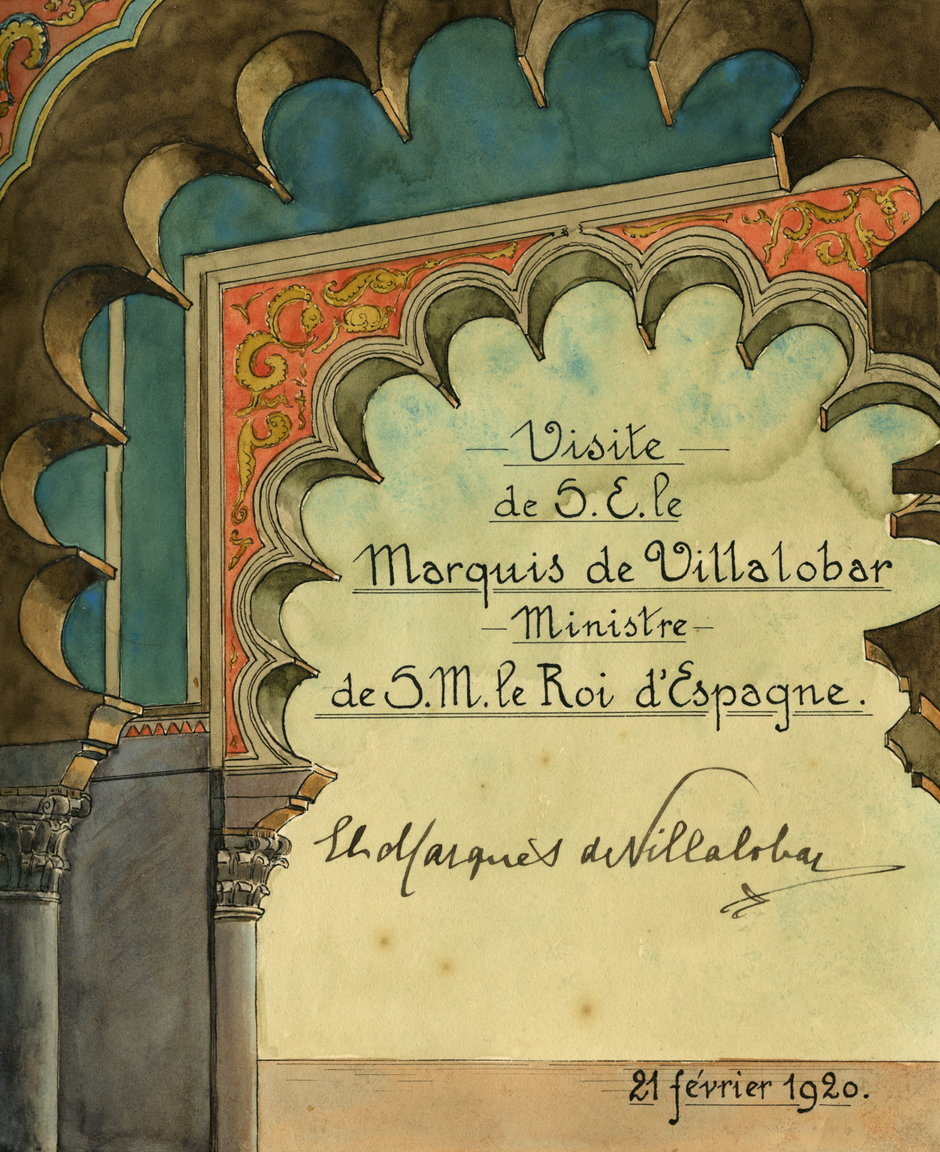 — Visite —
de S. E. le
Marquis de Villalobar
— Ministre —
de S. M. le Roi d'Espagne.
El Marqués de Villalobar
21 février 1920.